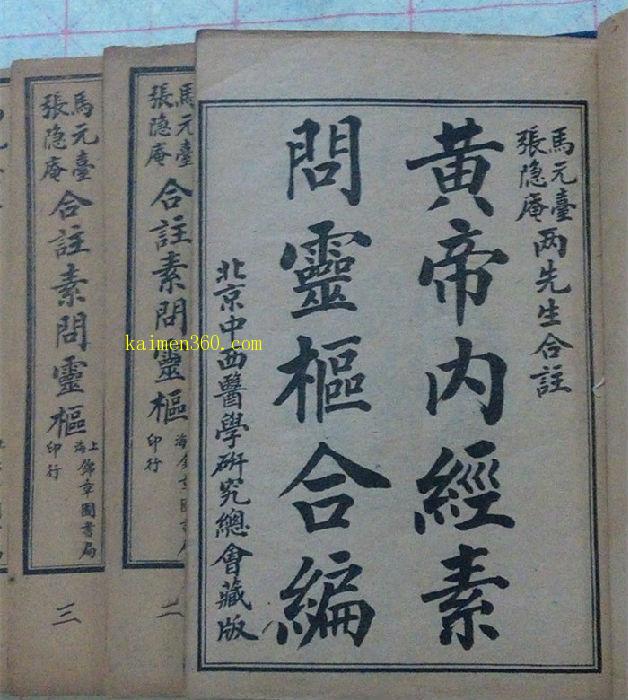 馬元臺
張隐庵
两先生合註
黄帝内經素
問靈樞合編
北京中西醫學研究總會藏版
馬元臺
張隐庵
合註素問靈樞
印行
二
馬元臺
張隐庵
合註素問靈樞
上海
錦章圖書局
印行
三
kaimen360.com